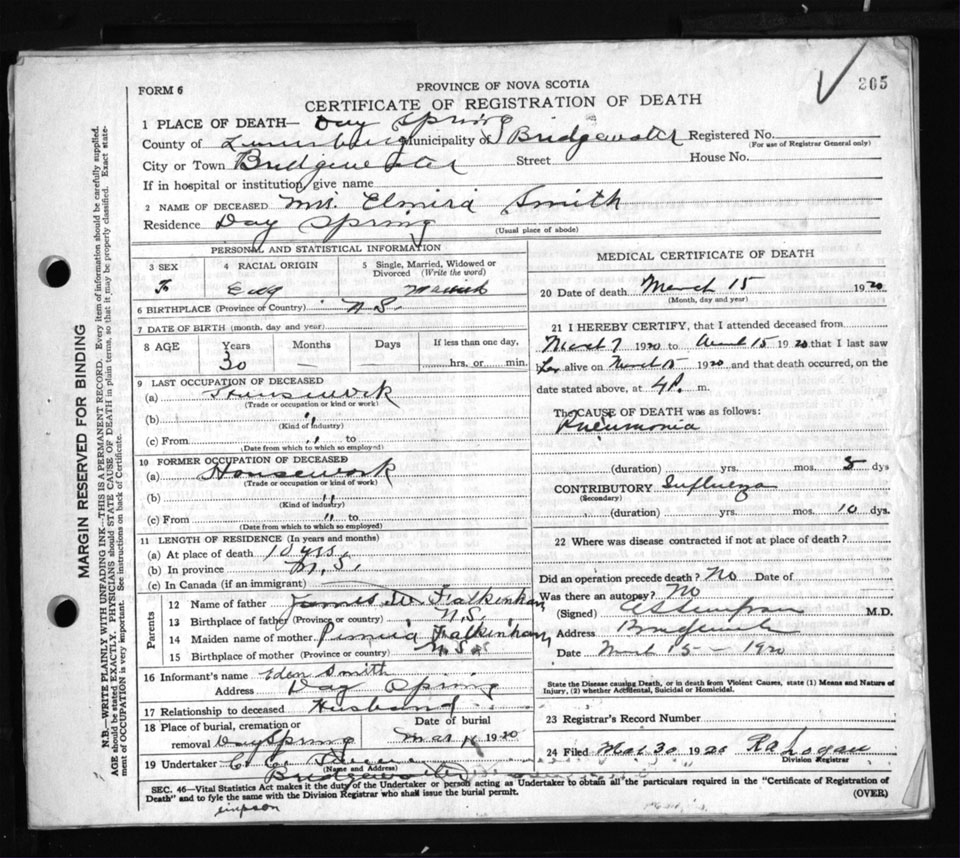 205
FORM 6
PROVINCE OF NOVA SCOTIA
CERTIFICATE OF REGISTRATION OF DEATH
1 PLACE OF DEATH— Day Spring
County of Lunenburg Municipality of Bridgewater Registered No.
(For use of Registrar General only)
City or Town Bridgewater Street House No.
If in hospital or institution, give name
2 NAME OF DECEASED Mrs. Elmira Smith
Residence Day Spring
(Usual place of abode)
PERSONAL AND STATISTICAL INFORMATION
3 SEX
F
4 RACIAL ORIGIN
Eng
5 Single, Married, Widowed or Divorced (Write the word)
Married
6 BIRTHPLACE (Province or Country) N S.
7 DATE OF BIRTH (month, day and year)
8 AGE Years Months Days If less than one day,
30 — — hrs. or min.
9 LAST OCCUPATION OF DECEASED
(a) Housework
(Trade or occupation or kind or work)
(b) "
(Kind of industry)
(c) From " to
(Date from which to which so employed)
10 FORMER OCCUPATION OF DECEASED
(a) Housework
(Trade or occupation or kind of work)
(b) "
(Kind of industry)
(c) From " to
(Date from which to which so employed)
11 LENGTH OF RESIDENCE (In years and months)
(a) At place of death 10 yrs.
(b) In province N. S.
(c) In Canada (if an immigrant)
Parents
12 Name of father James Falkenham
13 Birthplace of father (Province or country) N.S.
14 Maiden name of mother Falkenham
15 Birthplace of mother (Province or country) N. S.
16 Informant's name Eden Smith
Address Day Spring
17 Relationship to deceased Husband
18 Place of burial, cremation or removal Day Spring
Date of burial
Mar 1920
19 Undertaker C. C.
(Name and Address)
Bridgewater
MEDICAL CERTIFICATE OF DEATH
20 Date of death March 15 1920
(Month, day and year)
21 I HEREBY CERTIFY, that I attended deceased from
March 7 1920 to March 15 1920 that I last saw
her alive on March 15 1920 and that death occurred, on the
date stated above, at 4 P. m.
The CAUSE OF DEATH was as follows:
Pneumonia
(duration) yrs. mos. 8 dys
CONTRIBUTORY Influenza
(Secondary)
(duration) yrs. mos. 10 dys.
22 Where was disease contracted if not at place of death?
Did an operation precede death? No Date of
Was there an autopsy? No
(Signed) M.D.
Address Bridgewater
Date March 15 — 1920
State the Disease causing Death, or in death from Violent Causes, state (1) Means and Nature of
Injury, (2) whether Accidental, Suicidal or Homicidal.
23 Registrar's Record Number
24 Filed Mar 30 1920 R A Logan
Division Registrar
SEC. 46—Vital Statistics Act makes it the duty of the Undertaker or person acting as Undertaker to obtain all the particulars required in the "Certificate of Registration of
Death" and to fyle the same with the Division Registrar who shall issue the burial permit.
(OVER)
MARGIN RESERVED FOR BINDING
N.B.—WRITE PLAINLY WITH UNFADING INK—THIS IS A PERMANENT RECORD. Every item of information should be carefully supplied.
AGE should be stated EXACTLY. PHYSICIANS should STATE CAUSE OF DEATH in plain terms, so that it may be properly classified. Exact state-
ment of OCCUPATION is very important. See instructions on back of Certificate.